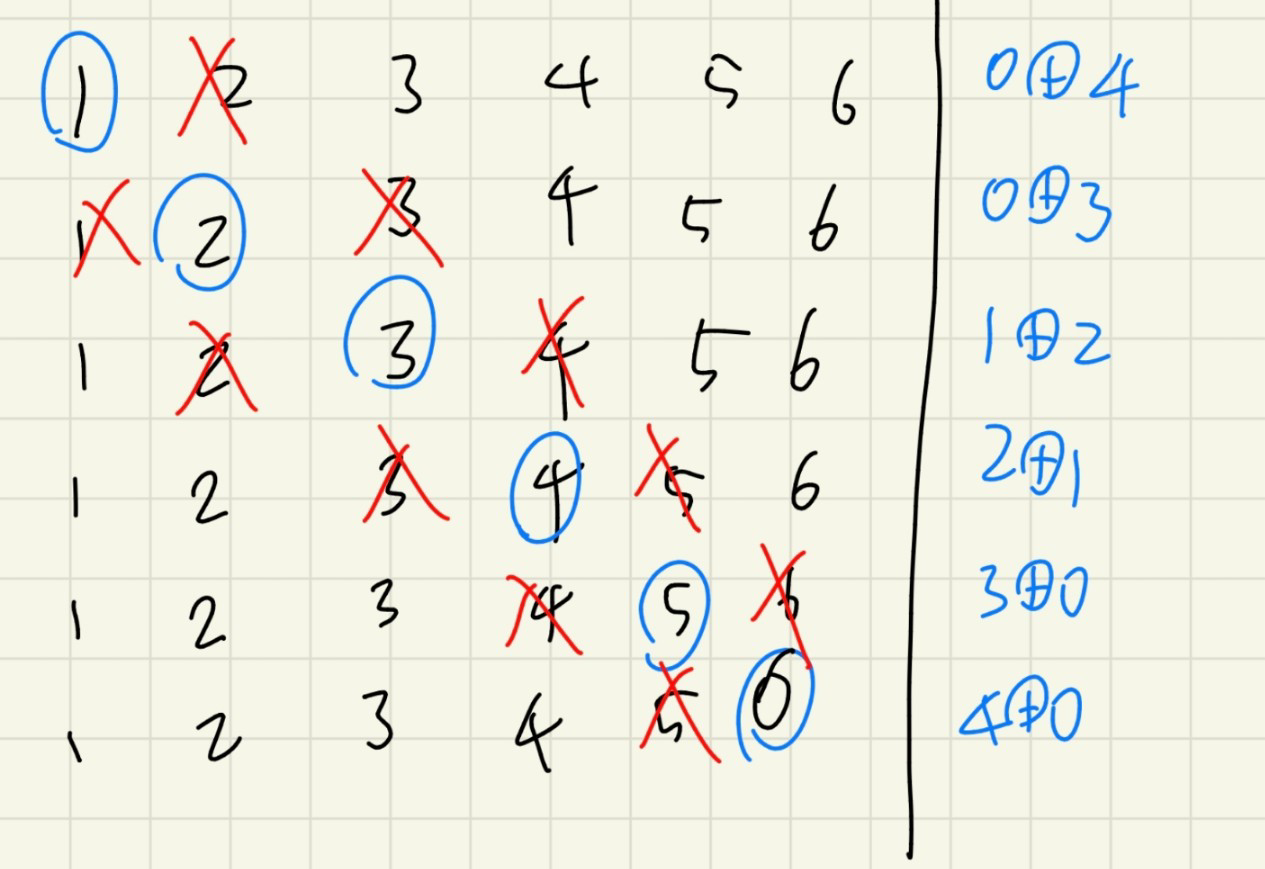 1 2 3 4 5 6 0⊕4
1 2 3 4 5 6 0⊕3
1 2 3 4 5 6 1⊕2
1 2 3 4 5 6 2⊕1
1 2 3 4 5 6 3⊕0
1 2 3 4 5 6 4⊕0